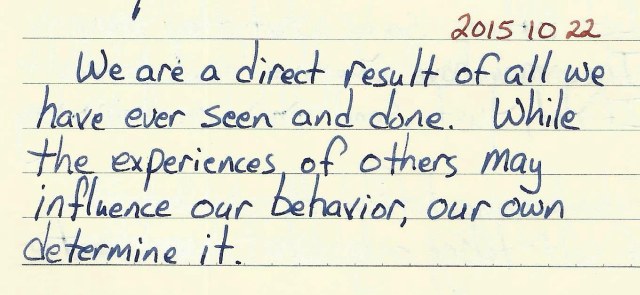 2015 10 22
We are a direct result of all we
have ever seen and done. While
the experiences of others may
influence our behavior, our own
determine it.